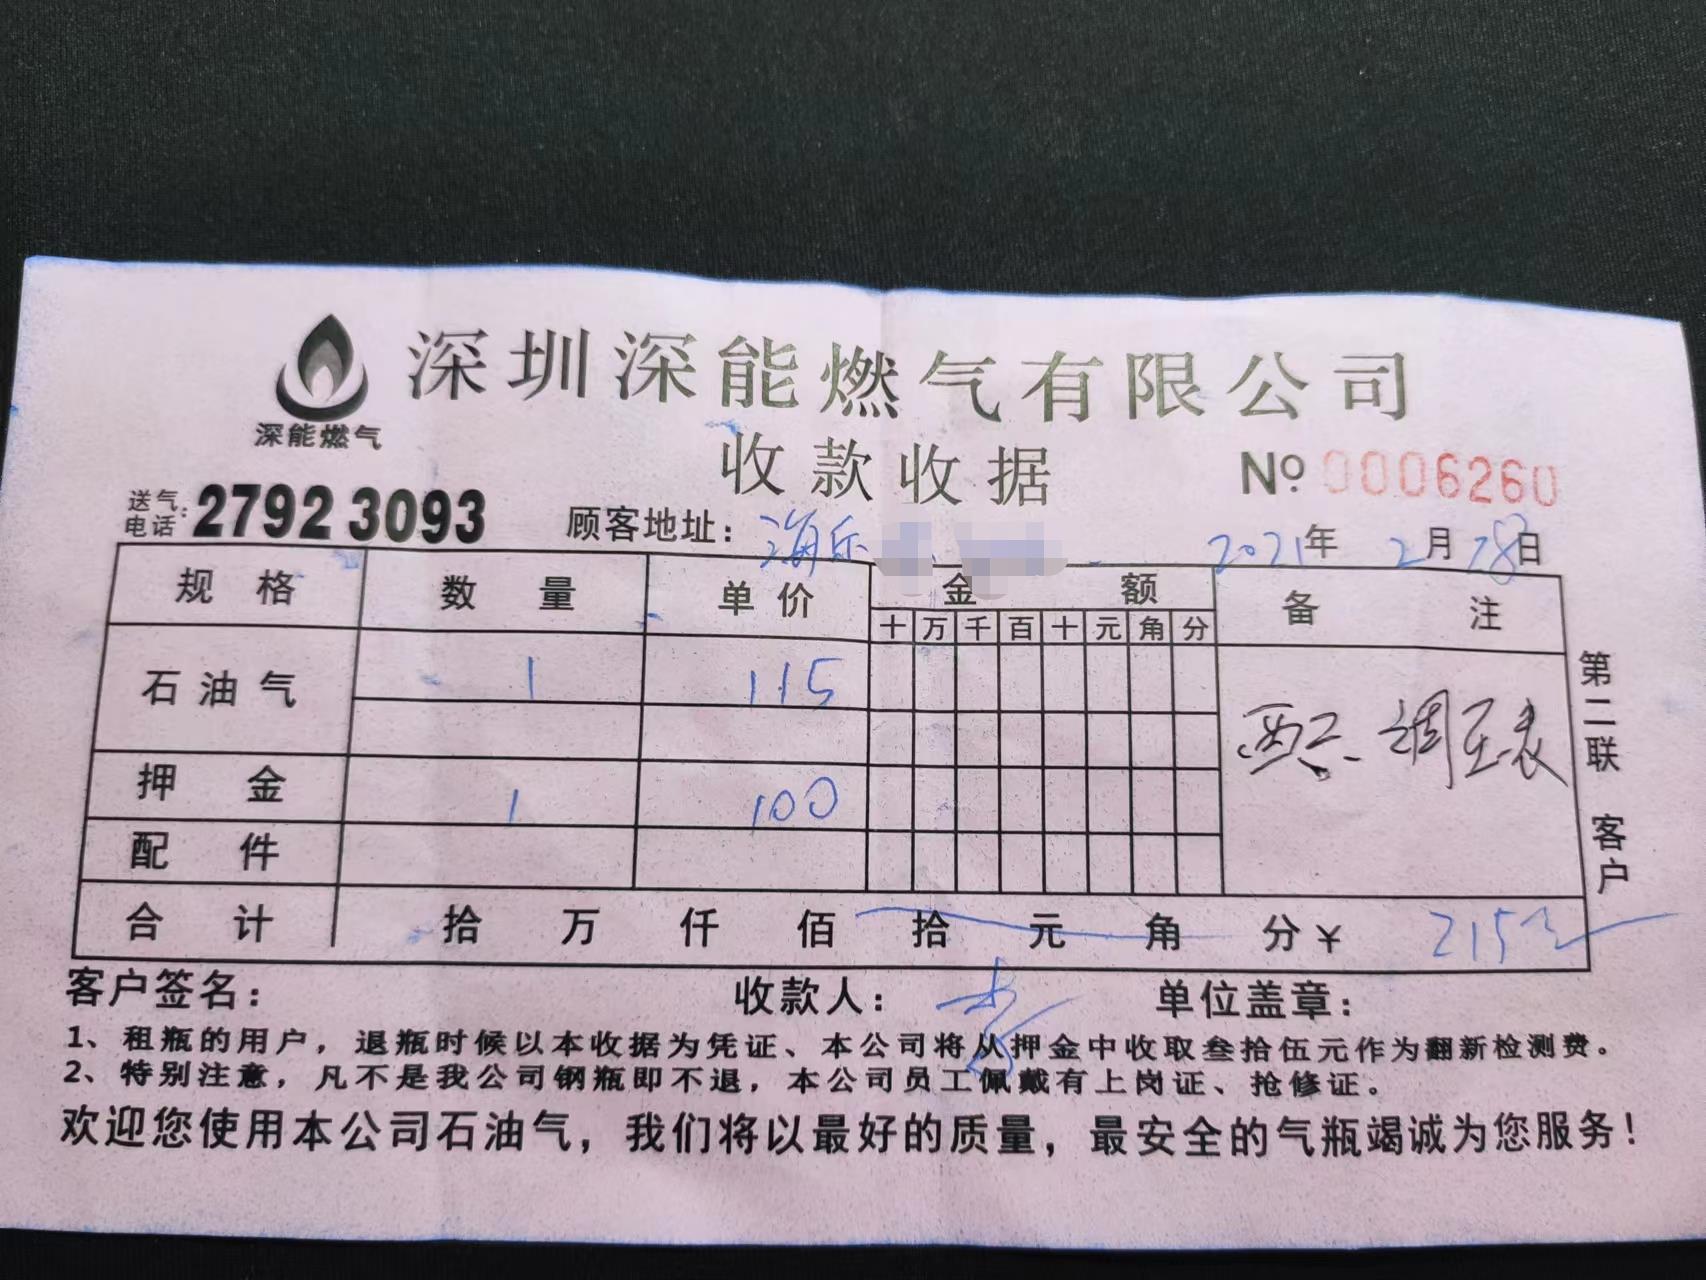 深圳深能燃气有限公司
深能燃气
收款收据
№ 0006260
送气电话: 27923093 顾客地址: 海乐 2021年2月28日
规格 数量 单价 金额 备注
十 万 千 百 十 元 角 分
石油气 1 115
调压表
押金 1 100
配件
合计 拾 万 仟 佰 拾 元 角 分 ¥ 215元
第二联 客户
客户签名: 收款人: 单位盖章:
1、租瓶的用户，退瓶时候以本收据为凭证、本公司将从押金中收取叁拾伍元作为翻新检测费。
2、特别注意，凡不是我公司钢瓶即不退，本公司员工佩戴有上岗证、抢修证。
欢迎您使用本公司石油气，我们将以最好的质量，最安全的气瓶竭诚为您服务！